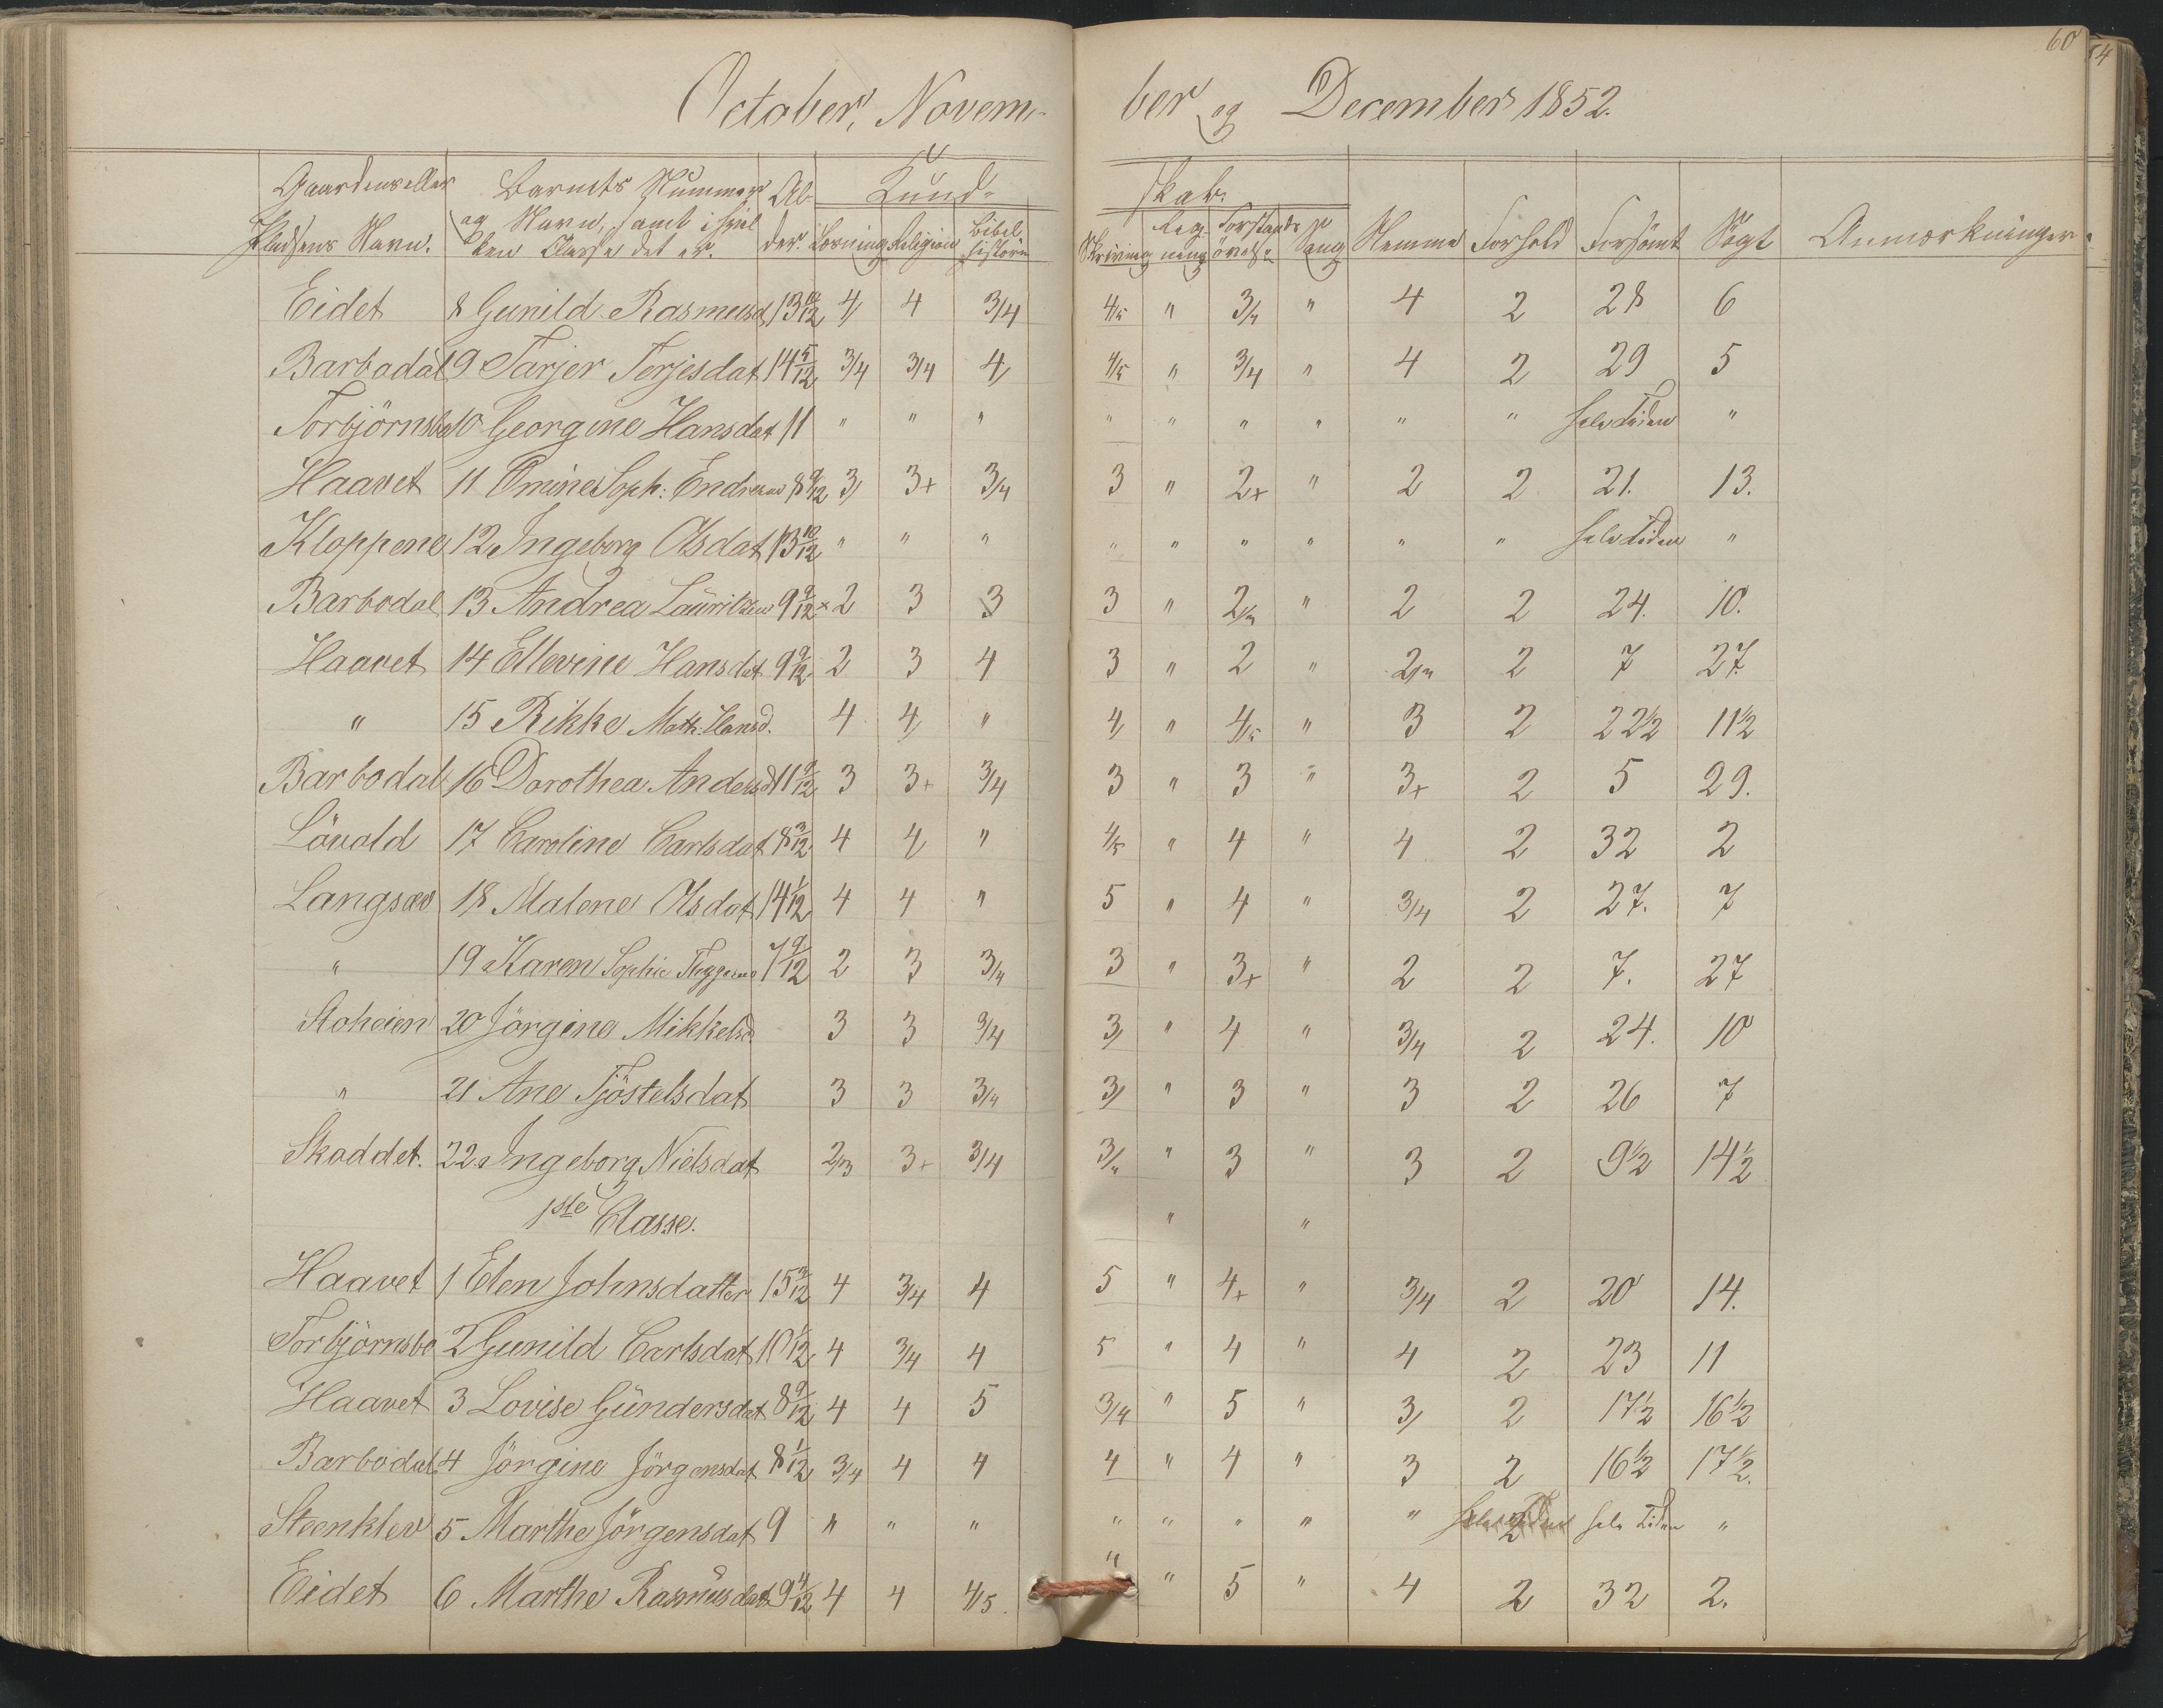 60
October, Novem- ber og December 1852.
Gaardens eller Pladsens Navn. | Barnets Nummer og Navn, samt i hvilken Classe det er. | Alder. | Kund- skab. | Læsning | Religion | Bibelhistorie | Skrivning | Regning | Forstands øvelse | Sang | Nemme | Forhold | Forsömt | Sögt | Anmærkninger
Eidet 8 Gunild Rasmusd. 13 10/12 4 4 3/4 4/5 " 3/4 " 4 2 28 6
Barbodal 9 Tarjer Terjesdat 14 5/12 3/4 3/4 4 4/5 " 3/4 " 4 2 29 5
Torbjörnsbo 10 Georgine Hansdat 11 " " " " " " " " " hele Tiden "
Haavet 11 Omine Soph: 8 9/12 3 3+ 3/4 3 " 2+ " 2 2 21. 13.
Kloppene 12 Ingeborg Olsdat 13 10/12 " " " " " " " " " hele Tiden "
Barbodal 13 Andrea Lauritzen 9 9/12 +2 3 3 3 " 2/3 " 2 2 24. 10.
Haavet 14 Ellevine Hansdat 9 9/12 2 3 4 3 " 2 " 2/3 2 7 27.
" 15 Rikke Math: Hansd. 4 4 " 4 " 4/5 " 3 2 22½ 11½
Barbodal 16 Dorothea Andersd 11 9/12 3 3+ 3/4 3 " 3 " 3+ 2 5 29.
Lövold 17 Caroline Carlsdat 8 3/12 4 4 " 4/5 " 4 " 4 2 32 2
Langsæv 18 Malene Olsdat 14 1/12 4 4 " 5 " 4 " 3/4 2 27. 7
" 19 Karen Sophie 7 9/12 2 3 3/4 3 " 3+ " 2 2 7. 27
Stoheien 20 Jörgine Mikkelsd. 3 3 3/4 3 " 4 " 3/4 2 24. 10
" 21 Ane Tjöstelsdat 3 3 3/4 3 " 3 " 3 2 26 7
Skoddet. 22 Ingeborg Nielsdat 2/3 3+ 3/4 3/4 " 3 " 3 2 9½ 14½
1ste Classe. " "
Haavet 1 Elen Johnsdatter 15 3/12 4 3/4 4 5 " 4+ " 3/4 2 20 14.
Torbjörnsbo 2 Gunild Carlsdat 10 1/12 4 3/4 4 5 " 4 " 4 2 23 11
Haavet 3 Lovise Gundersdat 8 9/12 4 4 5 3/4 " 5 " 3 2 17½ 16½
Barbodal 4 Jörgine Jörgensdat 8 1/12 3/4 4 4 4 " 4 " 3 2 16½ 17½.
Steenklev 5 Marthe Jörgensdat 9 " " " " " " " " 2 hele Tiden "
Eidet 6 Marthe Rasmusdat 9 4/12 4 4 4/5 " " 5 " 4 2 32 2.